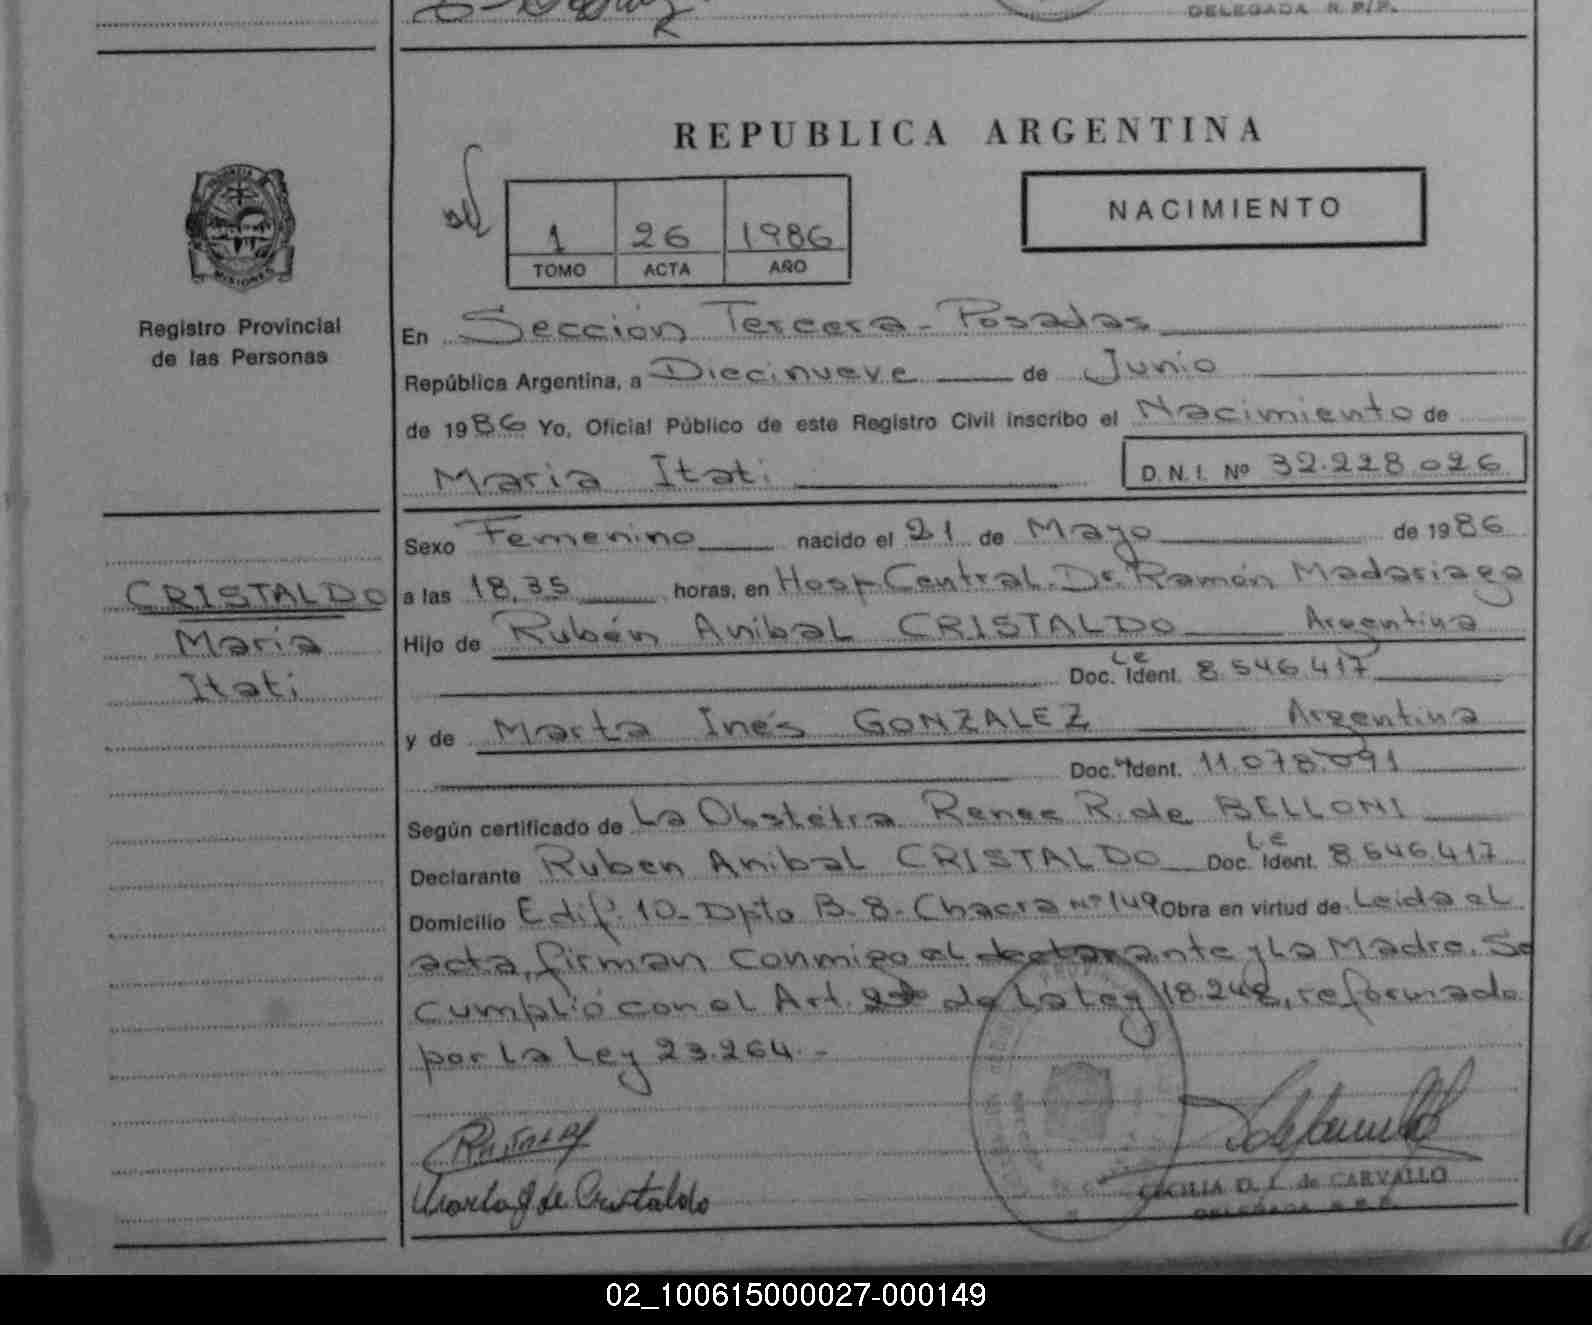 DELEGADA R.P/P.
REPUBLICA ARGENTINA
PROVINCIA
MISIONES
1 26 1986
TOMO ACTA AÑO
NACIMIENTO
Registro Provincial
de las Personas
En Sección Tercera - Posadas
República Argentina, a Diecinueve de Junio
de 1986 Yo, Oficial Público de este Registro Civil inscribo el Nacimiento de
Maria Itati
D.N.I. Nº 32.228.026
CRISTALDO
Maria
Itati
Sexo Femenino nacido el 21 de Mayo de 1986
a las 18,35 horas, en Hosp. Central. Dr. Ramón Madariaga
Hijo de Rubén Anibal CRISTALDO Argentina
Doc. Ident. LE 8.546.417
y de Marta Inés GONZALEZ Argentina
Doc. Ident. 11.078.091
Según certificado de La Obstétra Renee R. de BELLONI
Declarante Ruben Anibal CRISTALDO Doc. Ident. LE 8.546.417
Domicilio Edif. 10 - Dpto B. 8 - Chacra Nº 149 Obra en virtud de Leida el
acta, firman conmigo el declarante y La Madre. Se
cumplió con el Art. de La Ley 18.248, reformado
por La Ley 23.264. -
Marta G de Cristaldo
CECILIA D. L. de CARVALLO
DELEGADA R.P.P.
02_100615000027-000149